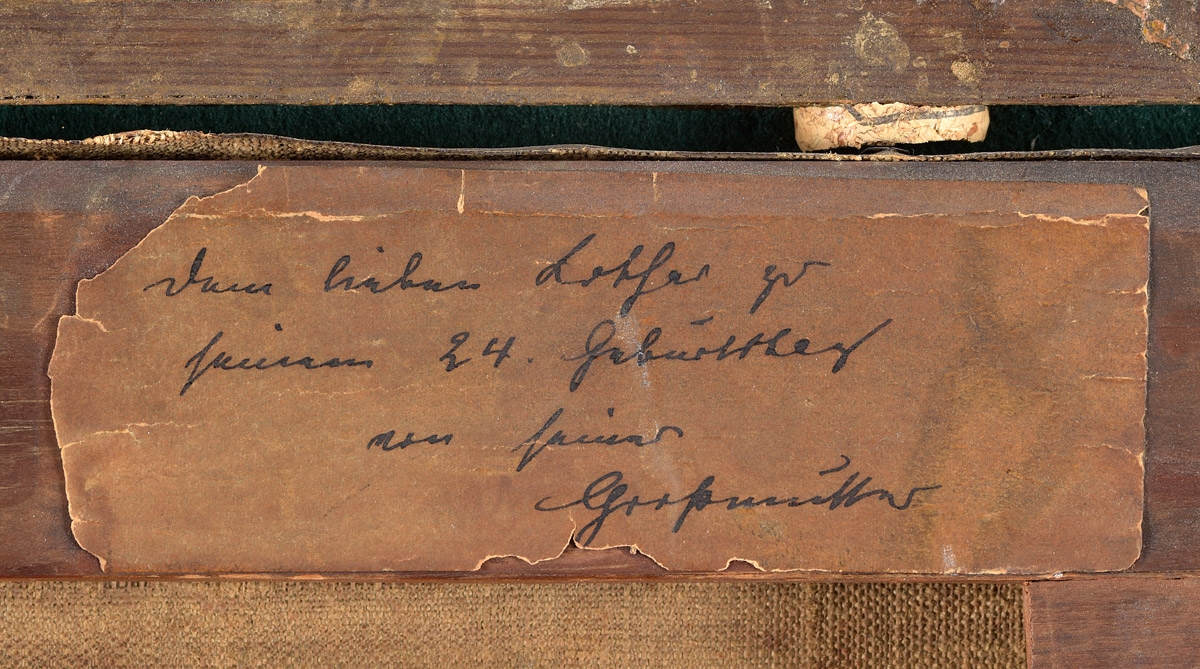 Dem lieben Lothar zu
seinem 24. Geburtstag
von seiner
Großmutter